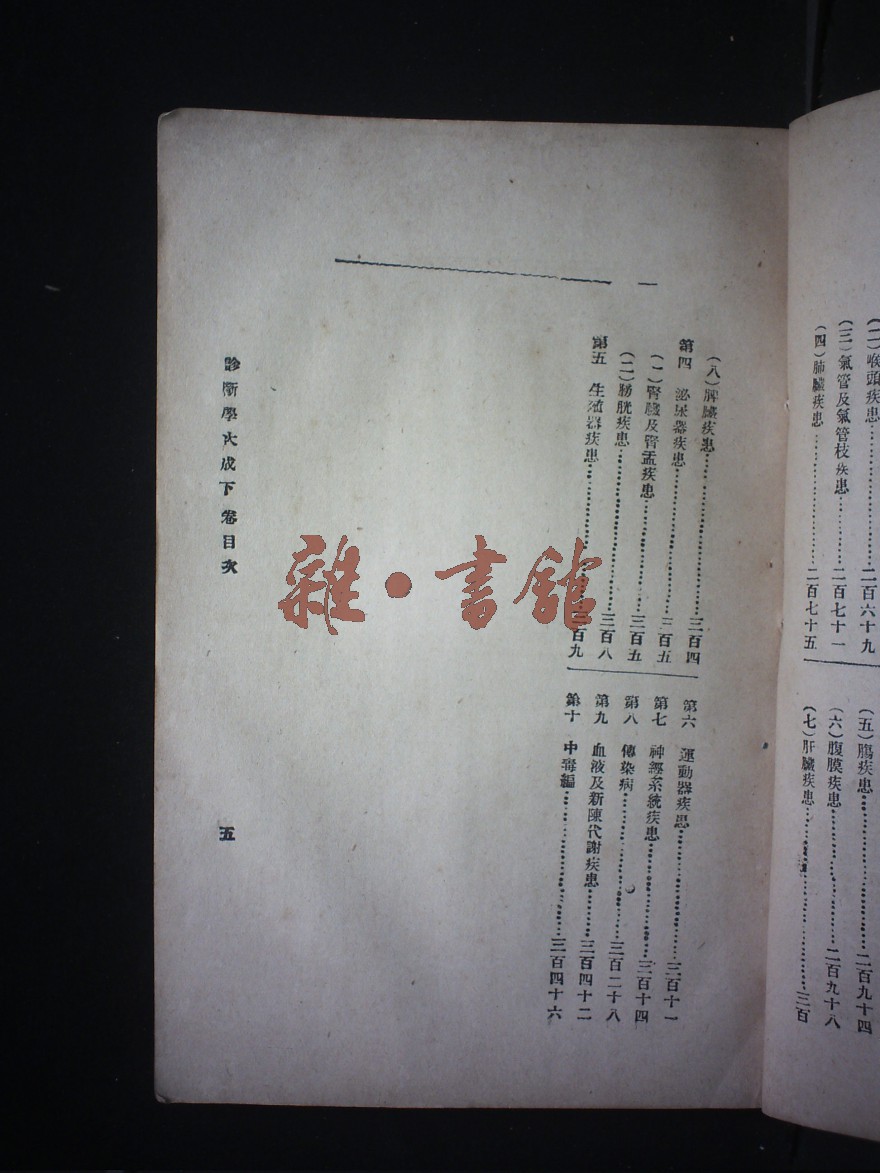 (二)喉頭疾患……二百六十九
(三)氣管及氣管枝疾患……二百七十一
(四)肺臟疾患……二百七十五
(五)腸疾患……二百九十四
(六)腹膜疾患……二百九十八
(七)肝臟疾患……三百
(八)脾臟疾患……三百四
第四 泌尿器疾患……三百五
(一)腎臟及腎盂疾患……三百五
(二)膀胱疾患……三百八
第五 生殖器疾患……三百九
第六 運動器疾患……三百十一
第七 神經系統疾患……三百十四
第八 傳染病……三百二十八
第九 血液及新陳代謝疾患……三百四十二
第十 中毒編……三百四十六
診斷學大成下卷目次
五
雜·書館